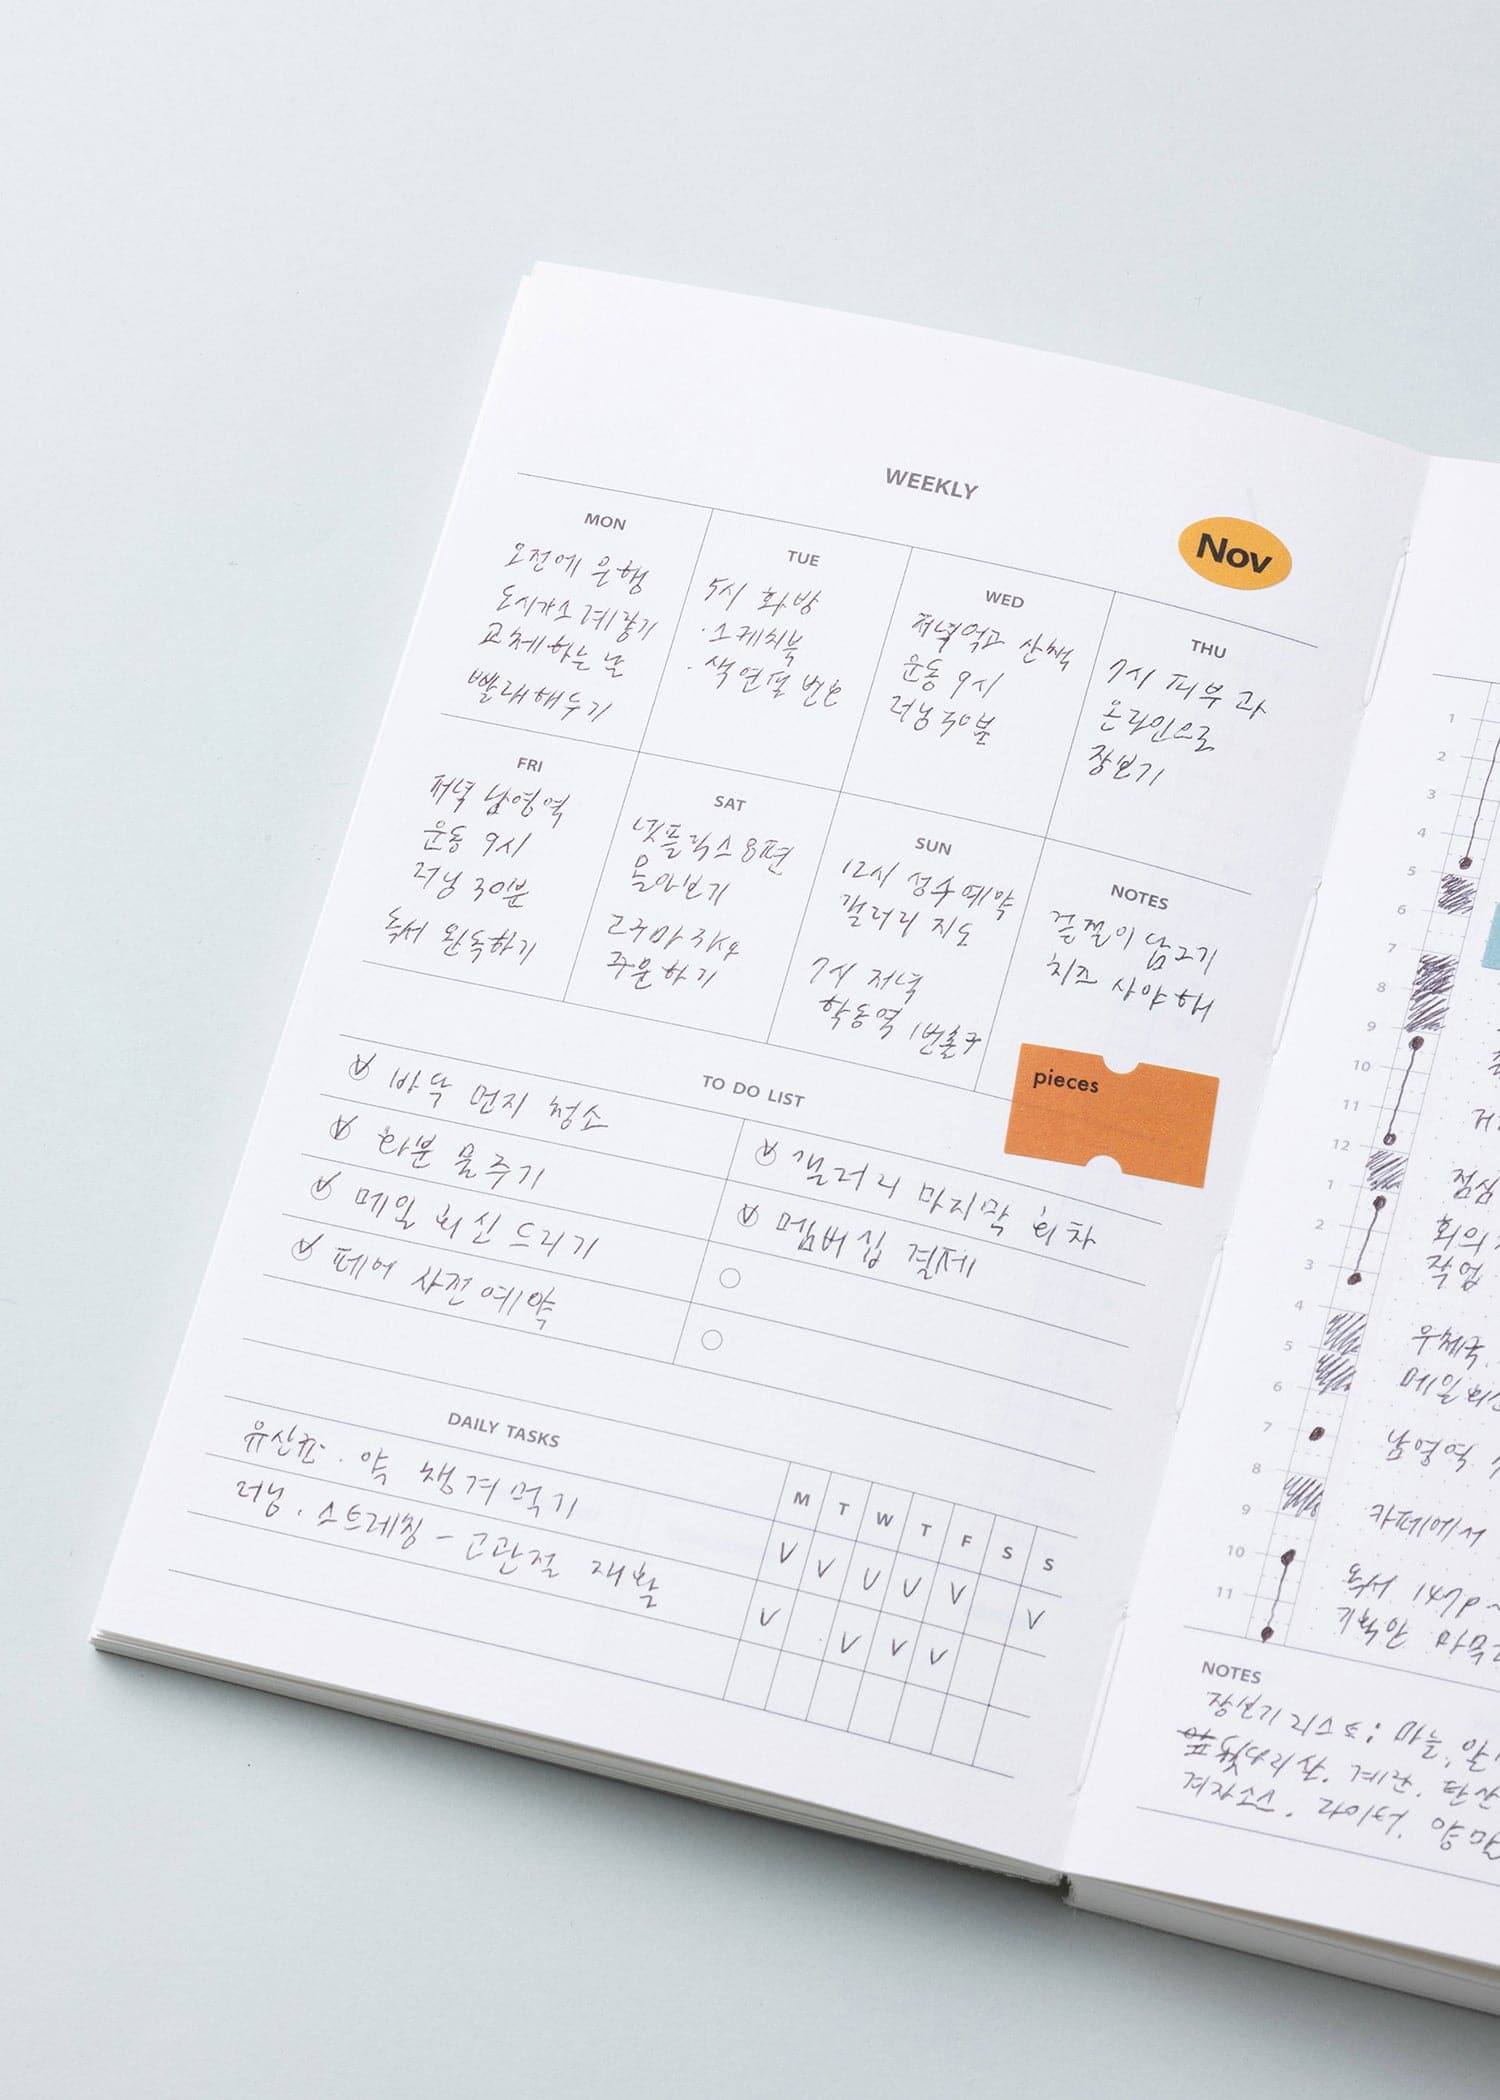 WEEKLY
Nov
MON
오전에 은행
도시가스 계량기
교체하는 날
빨래해두기
TUE
5시 화방
· 스케치북
· 색연필 번호
WED
저녁먹고 산책
운동 9시
러닝 30분
THU
7시 피부과
온라인으로
장보기
FRI
저녁 남영역
운동 9시
러닝 30분
독서 완독하기
SAT
넷플릭스 8편
몰아보기
고구마
주문하기
SUN
12시 성수 예약
갤러리 지도
7시 저녁
학동역 1번출구
NOTES
겉절이 담그기
치즈 사야해
pieces
TO DO LIST
바닥 먼지 청소
화분 물주기
메일 회신 드리기
페어 사전예약
갤러리 마지막 회차
멤버십 결제
DAILY TASKS
유산균 · 약 챙겨먹기
러닝 · 스트레칭 - 고관절 재활
M T W T F S S
V V V V V V
V V V V
1
2
3
4
5
6
7
8
9
10
11
12
1
2
3
4
5
6
7
8
9
10
11
점심
회의
작업
우체국
메일
남영역
카페에서
독서
NOTES
장보기 리스트: 마늘,
계란.
겨자소스.